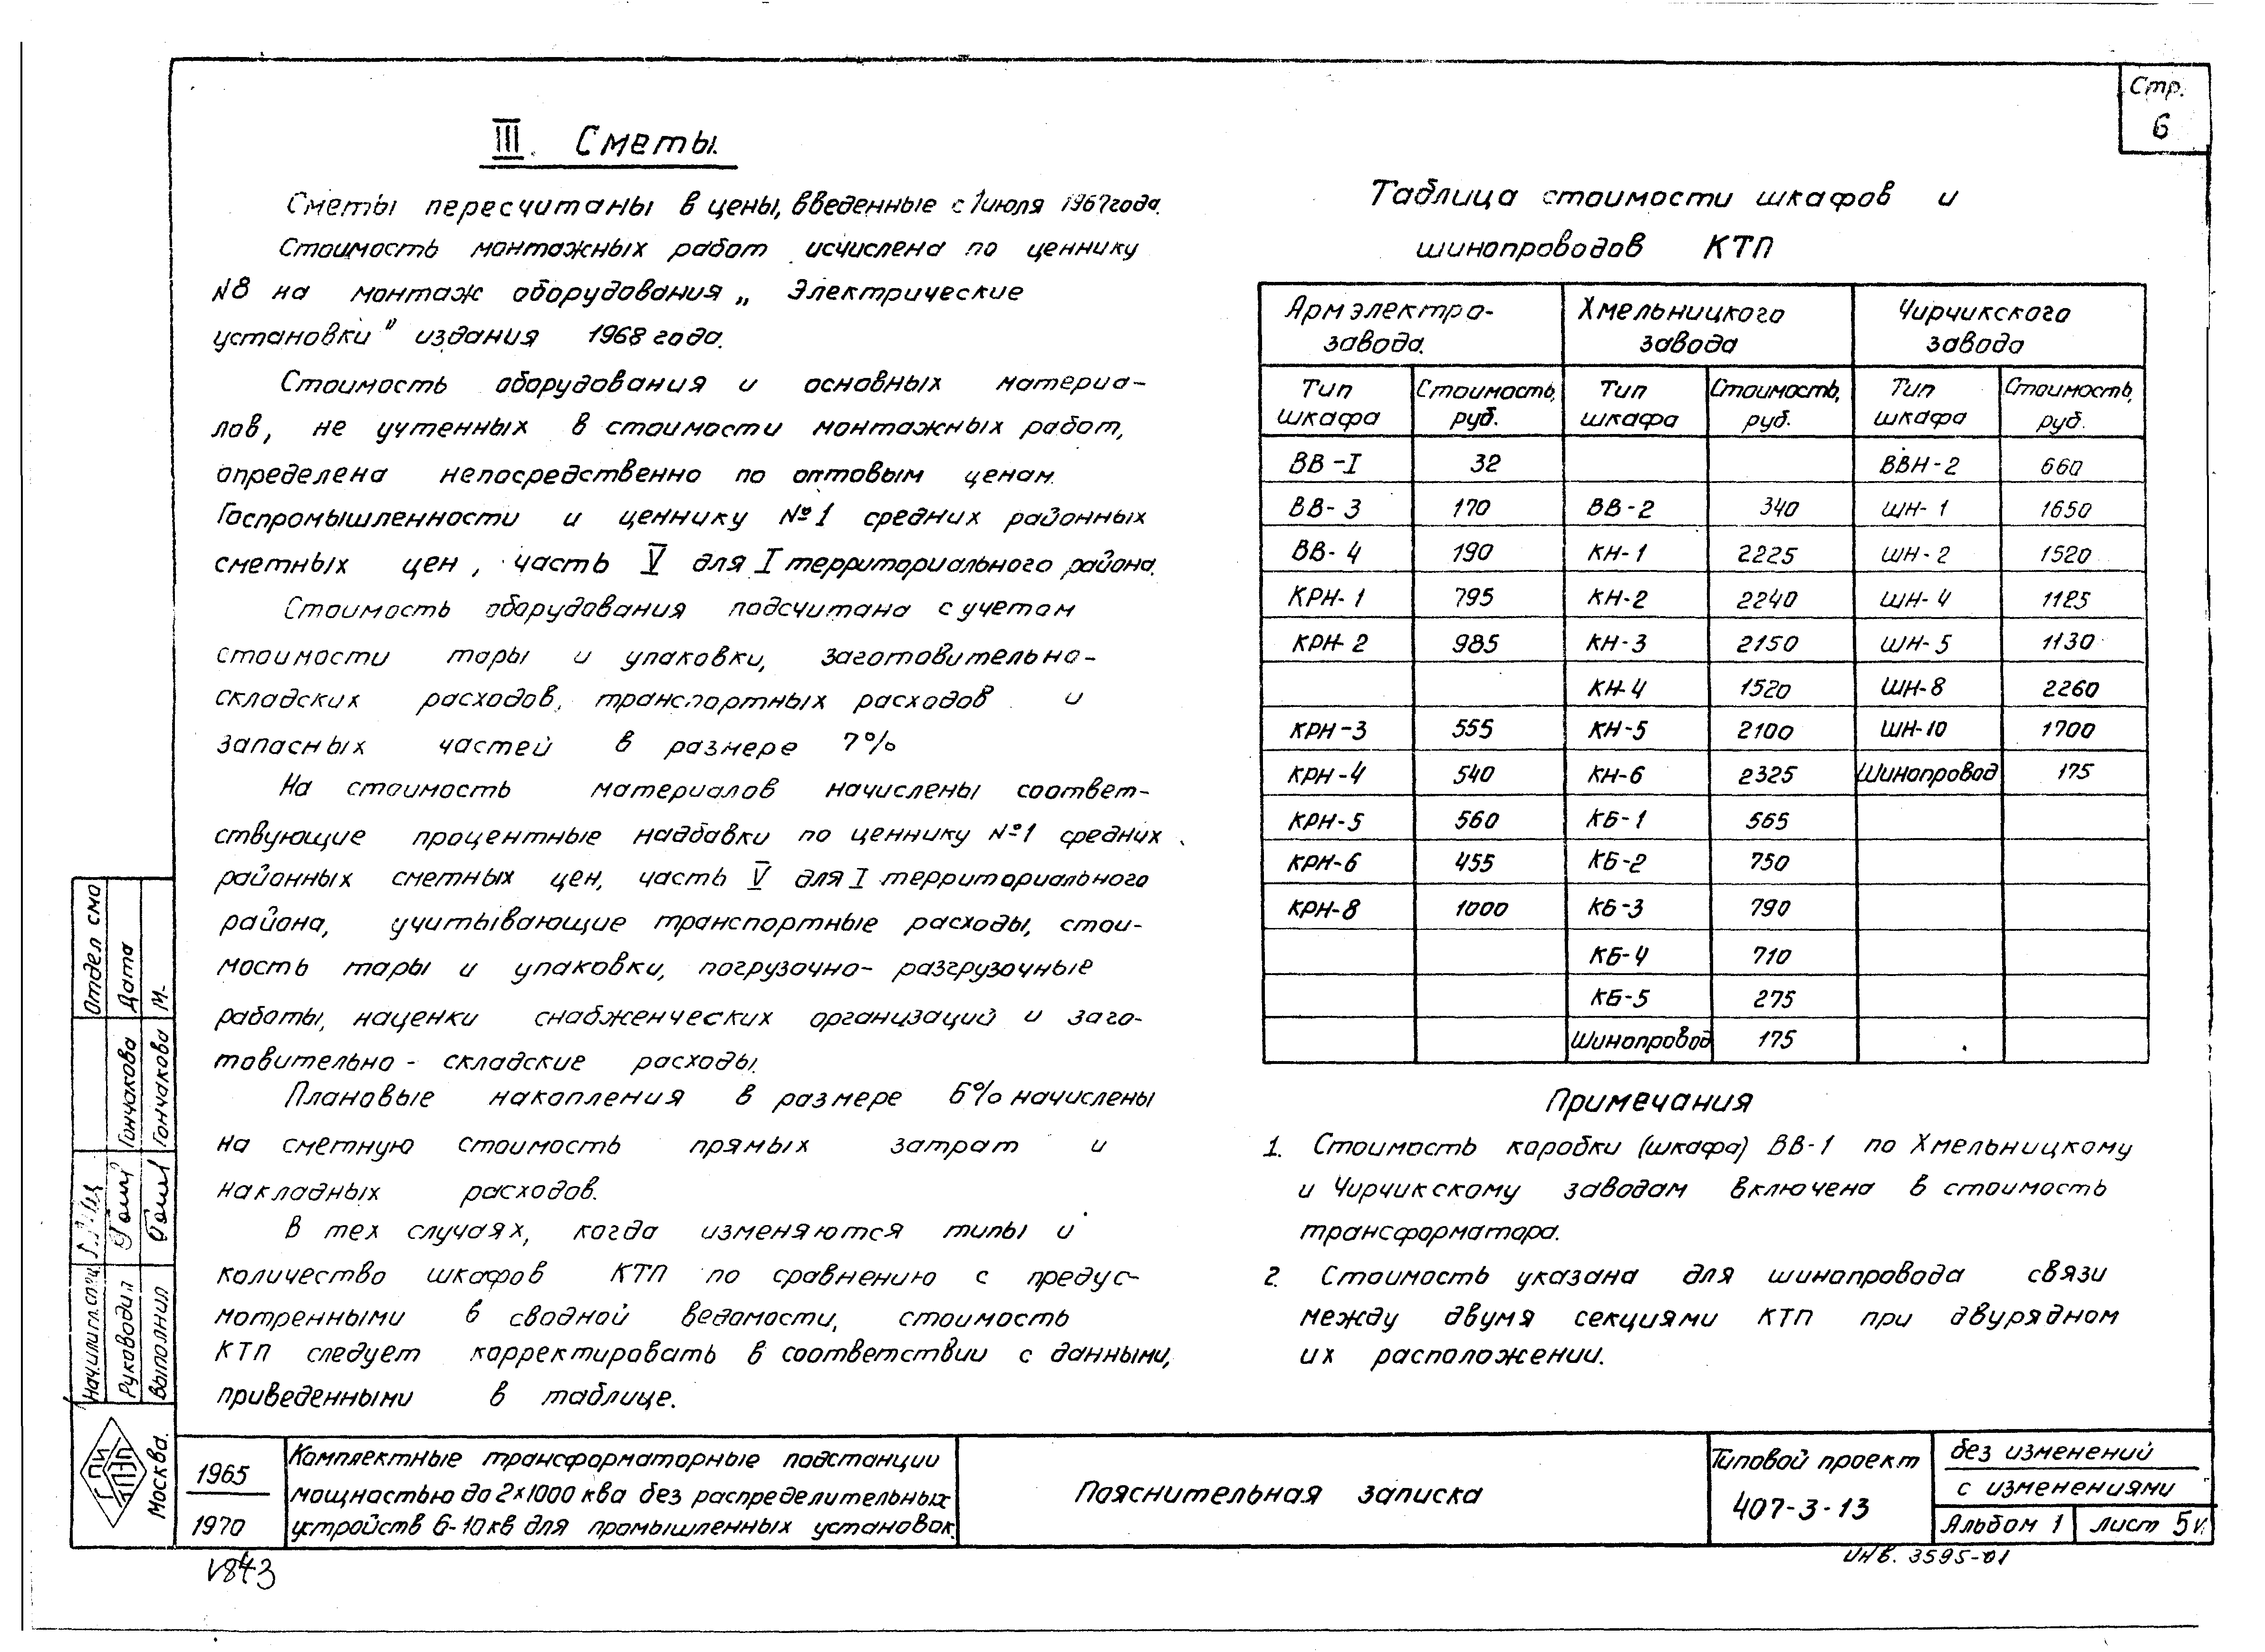 Стр.
6
III. Сметы.
Сметы пересчитаны в цены, введенные с 1 июля 1967 года.
Стоимость монтажных работ исчислена по ценнику
№8 на монтаж оборудования „ Электрические
установки" издания 1968 года.
Стоимость оборудования и основных материа-
лов, не учтенных в стоимости монтажных работ,
определена непосредственно по оптовым ценам
Госпромышленности и ценнику №1 средних районных
сметных цен, часть V для I территориального района.
Стоимость оборудования подсчитана с учетом
стоимости тары и упаковки, заготовительно-
складских расходов, транспортных расходов и
запасных частей в размере 7%
На стоимость материалов начислены соответ-
ствующие процентные надбавки по ценнику №1 средних
районных сметных цен, часть V для I территориального
района, учитывающие транспортные расходы, стои-
мость тары и упаковки, погрузочно- разгрузочные
работы, наценки снабженческих организаций и заго-
товительно - складские расходы.
Плановые накопления в размере 6% начислены
на сметную стоимость прямых затрат и
накладных расходов.
В тех случаях, когда изменяются типы и
количество шкафов КТП по сравнению с предус-
мотренными в сводной ведомости, стоимость
КТП следует корректировать в соответствии с данными,
приведенными в таблице.
Таблица стоимости шкафов и
шинопроводов КТП
Армэлектро-
завода. Хмельницкого
завода Чирчикского
завода
Тип
шкафа Стоимость,
руб. Тип
шкафа Стоимость,
руб. Тип
шкафа Стоимость,
руб.
ВВ-I 32 ВВН-2 660
ВВ-3 170 ВВ-2 340 ШН-1 1650
ВВ-4 190 КН-1 2225 ШН-2 1520
КРН-1 795 КН-2 2240 ШН-4 1125
КРН-2 985 КН-3 2150 ШН-5 1130
КН-4 1520 ШН-8 2260
КРН-3 555 КН-5 2100 ШН-10 1700
КРН-4 540 КН-6 2325 Шинопровод 175
КРН-5 560 КБ-1 565
КРН-6 455 КБ-2 750
КРН-8 1000 КБ-3 790
КБ-4 710
КБ-5 275
Шинопровод 175
Примечания
1. Стоимость коробки (шкафа) ВВ-1 по Хмельницкому
и Чирчикскому заводам включена в стоимость
трансформатора.
2. Стоимость указана для шинопровода связи
между двумя секциями КТП при двурядном
их расположении.
Отдел
Дата
Гончакова
Гончакова
Руководил
Выполнил
Москва.
1965
1970
Комплектные трансформаторные подстанции
мощностью до 2х1000 ква без распределительных
устройств 6-10 кв для промышленных установок.
Пояснительная записка
Типовой проект
407-3-13
без изменений
с изменениями
Альбом 1 лист 5
инв. 3595-01
V843